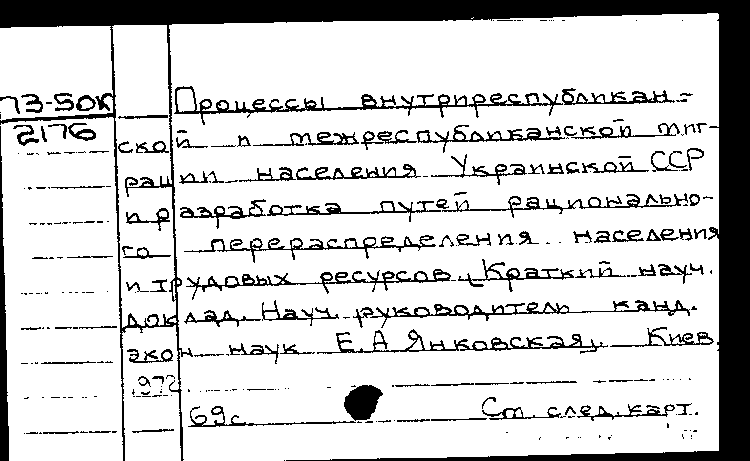 73-50к
2176
Процессы внутриреспубликан-
ской и межреспубликанской миг-
рации населения Украинской ССР
и разработка путей рационально-
го перераспределения населения
и трудовых ресурсов. Краткий науч.
доклад. Науч. руководитель канд.
экон наук Е.А Янковская, Киев,
1972
69с. См. след. карт.